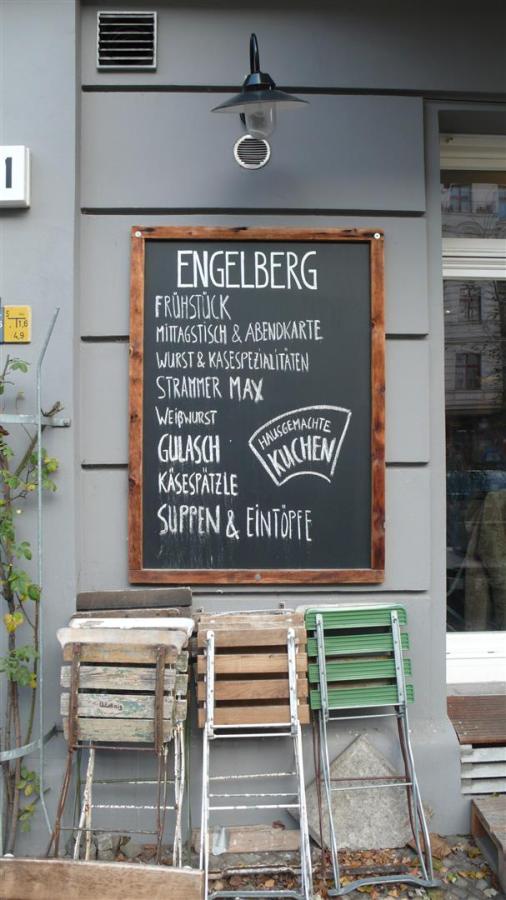 1
ENGELBERG
FRÜHSTÜCK
MITTAGSTISCH & ABENDKARTE
WURST & KÄSESPEZIALITÄTEN
STRAMMER MAX
WEIßWURST
GULASCH
HAUSGEMACHTE
KUCHEN
KÄSESPÄTZLE
SUPPEN & EINTÖPFE
S
1,6
4,9